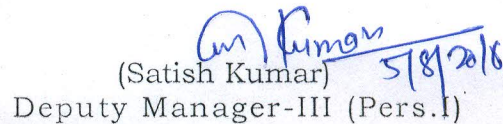 Kumar
5/8/2016
(Satish Kumar)
Deputy Manager-III (Pers.I)